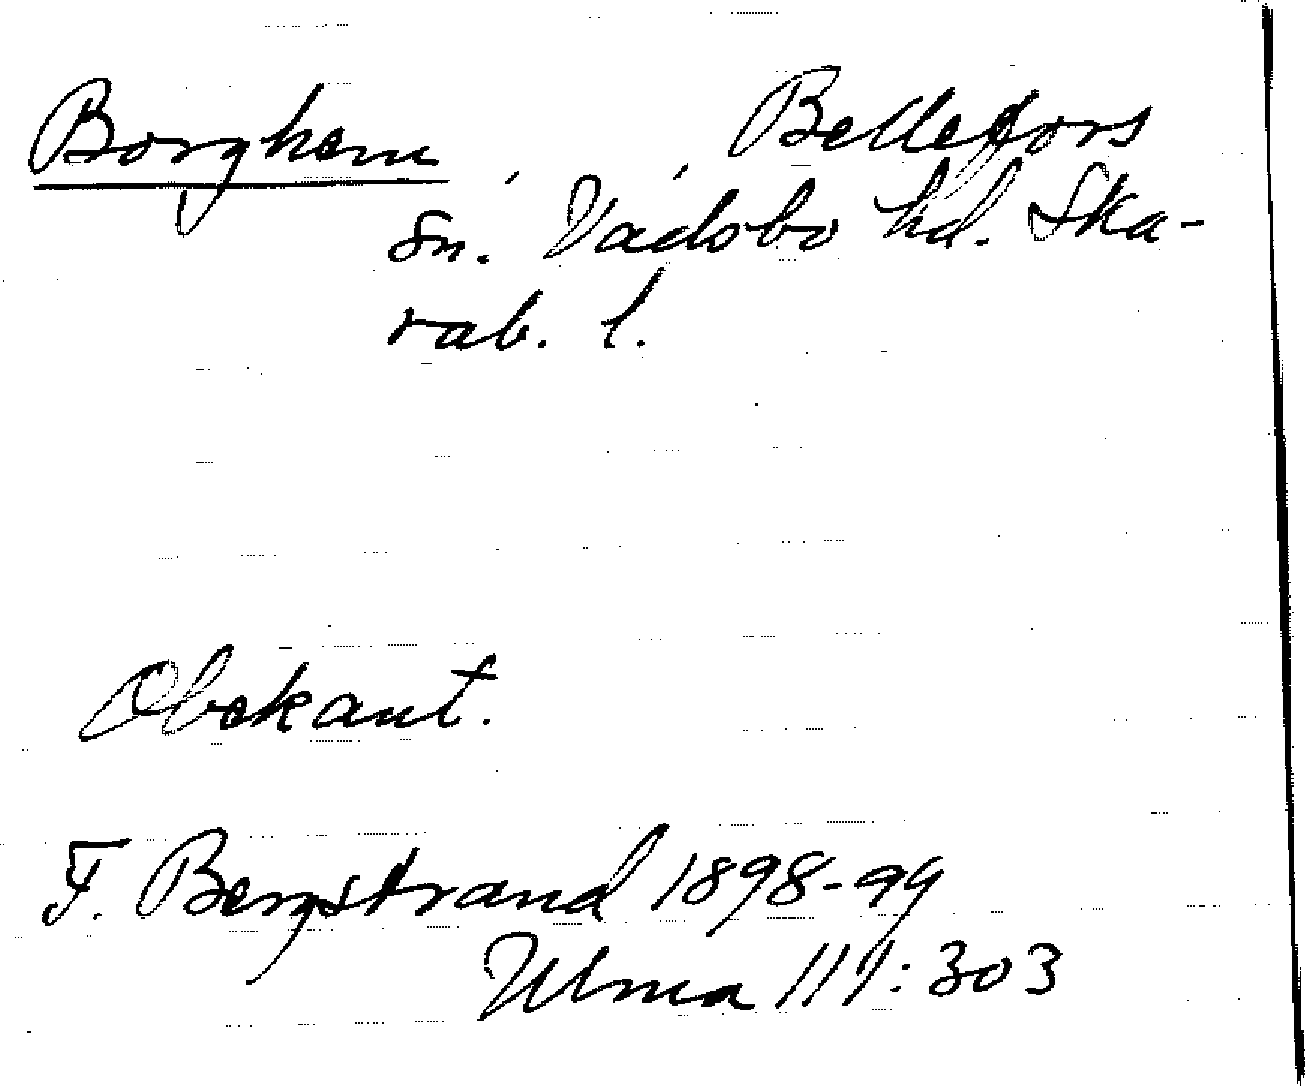 Borghem Bellefors
sn. Vadsbo hd. Ska-
rab. l.
Obekant.
F. Bergstrand 1898-99
Ulma 111:303